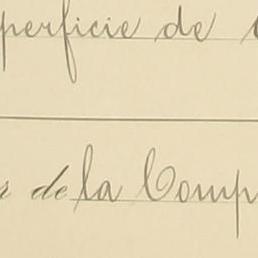 perficie de
de la Comp